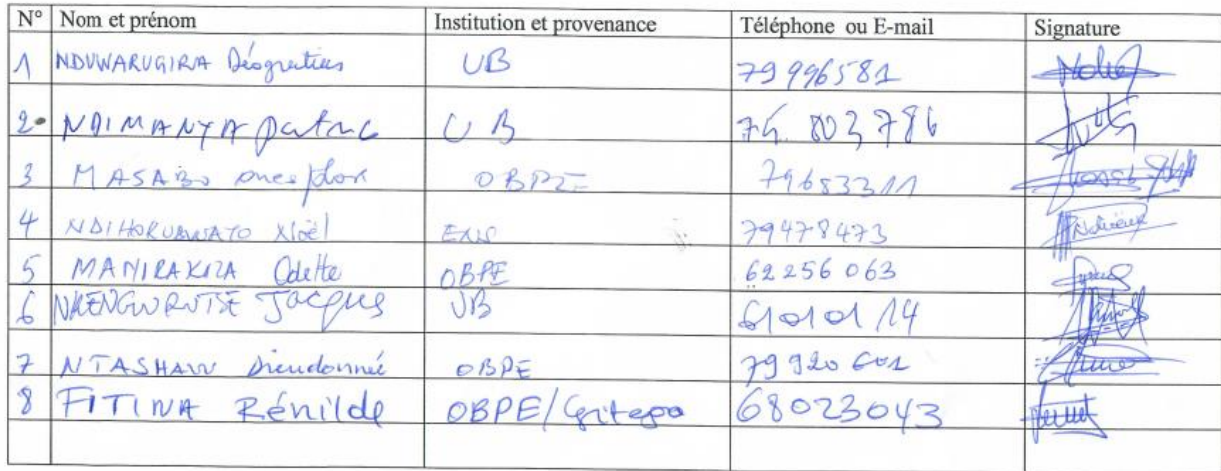 N° Nom et prénom Institution et provenance Téléphone ou E-mail Signature
1 NDUWARUGIRA Déogratias UB 79996581
2 NDIMANYA Patric UB 75 803 786
3 MASABO Onesphor OBPE 79653311
4 NDIHOKUBWAYO Noël 79478473
5 MANIRAKIZA Odette OBPE 62256063
6 NKENGURUTSE Jacques UB 61010114
7 NTASHAVU Dieudonné OBPE 79920601
8 FITINA Rénilde OBPE/Gitega 68023043